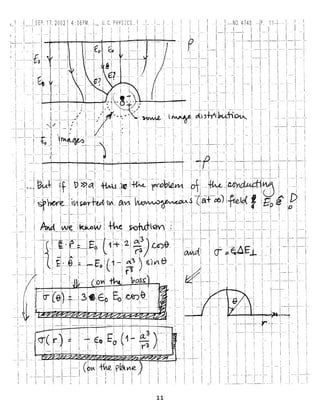 SEP. 17. 2002 4:06PM U C PHYSICS NO. 4740 P. 11
P
E₀ E₀ E₀
E₀ θ
E? E?
some image distribution
images
-P
But if D≫a this is the problem of the conducting
sphere inserted in an homogeneous (at ∞) field E₀
And we know the solution :
E·r̂ = E₀ (1 + 2 a³/r³) cosθ
E·θ̂ = -E₀ (1 - a³/r³) sinθ
and σ = ε₀ΔE⊥
(on the boss)
σ(θ) = 3 ε₀ E₀ cosθ
θ
r
σ(r) = - ε₀ E₀ (1 - a³/r³)
(on the plane)
11